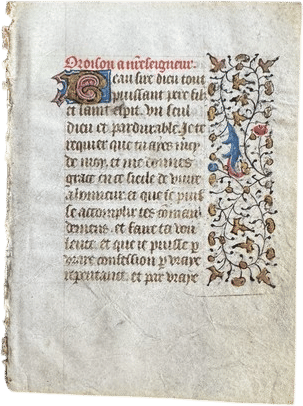 Oroison a nr̃e seigneur.
Beau sire dieu tout
puissant pere filz
et saint esp̃it. Vn seul
dieu et pardurable. Je te
requier que tu ayes mcy
de moy. et me donnes
grace en ce siecle de viure
a lonneur. et que ie puisse
acomplir tes comen
demens. et faire ta vou
lente. et que ie puisse p
vraye confession p vraye
repentance. et par vraye